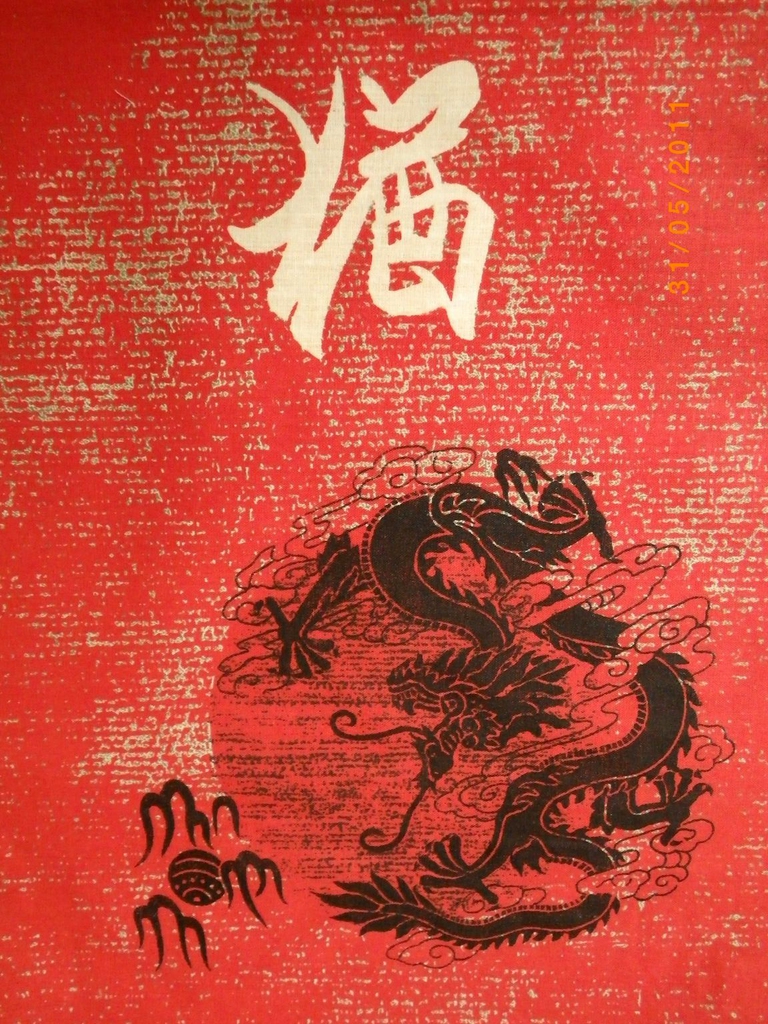 猶
31/05/2011